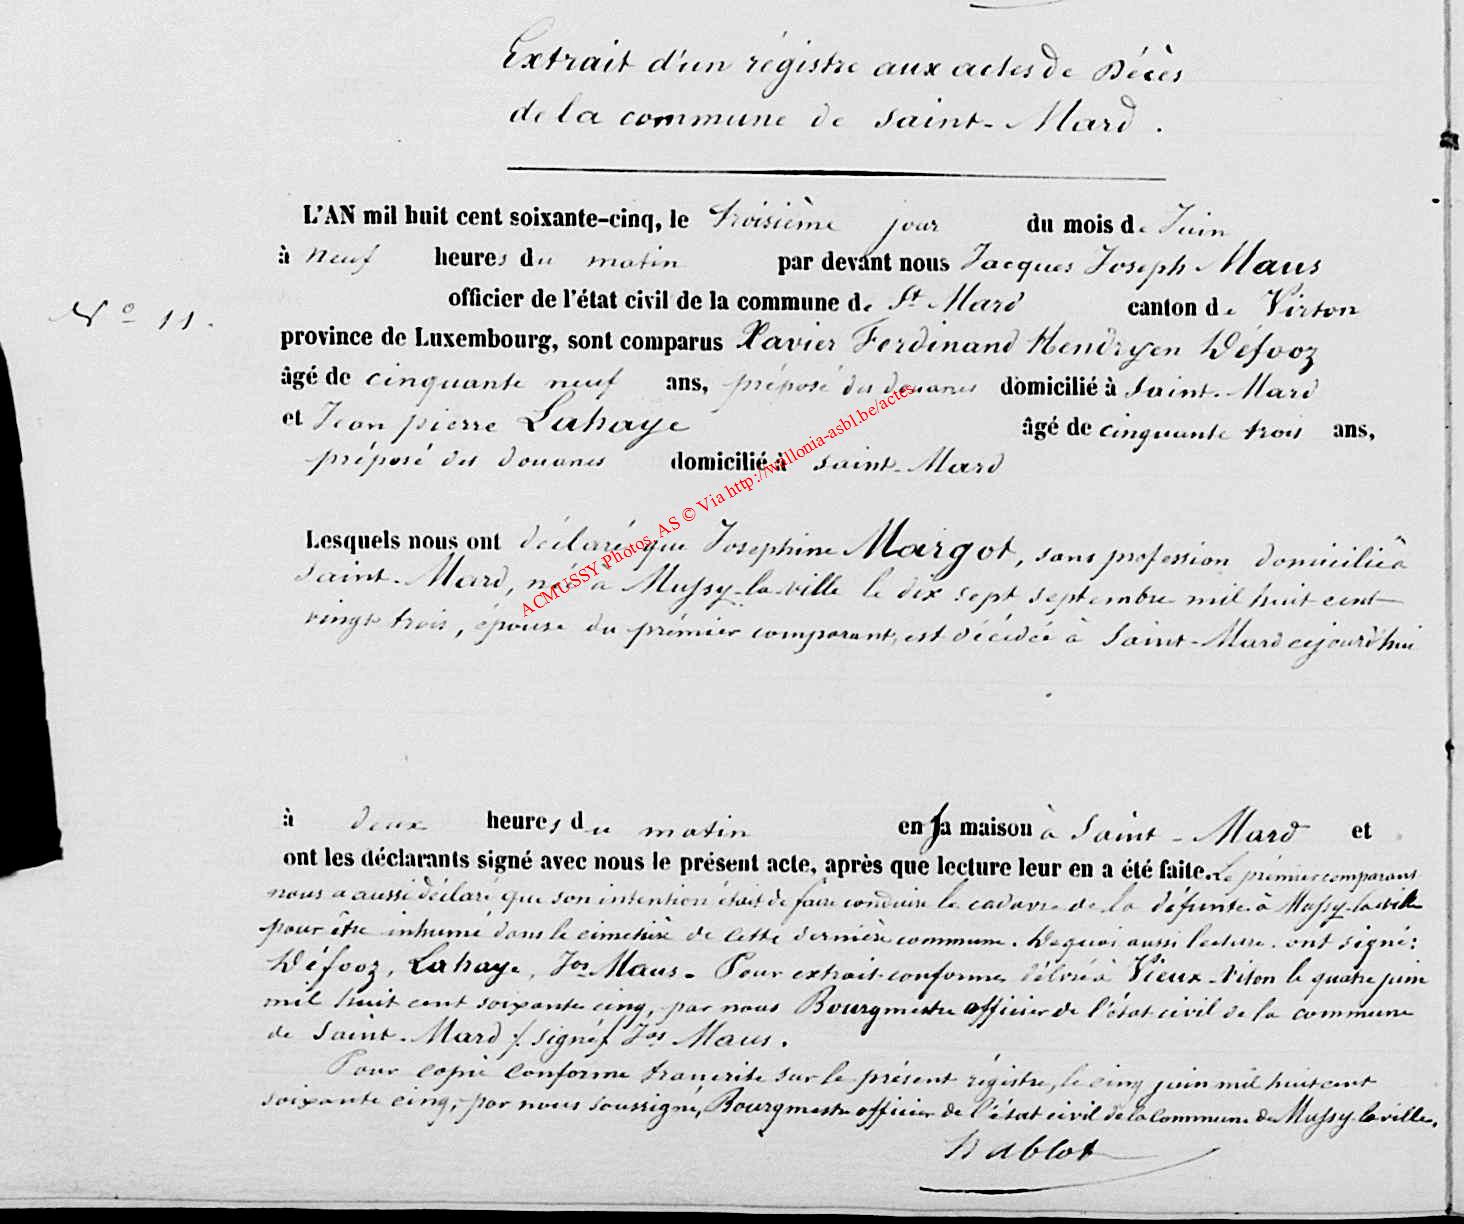 Extrait d'un régistre aux actes de Décès
de la commune de Saint-Mard.
L'AN mil huit cent soixante-cinq, le troisième jour du mois de Juin
à neuf heures du matin par devant nous Jacques Joseph Maus
officier de l'état civil de la commune de St Mard canton de Virton
N° 11.
province de Luxembourg, sont comparus Xavier Ferdinand Hendryen Défooz
âgé de cinquante neuf ans, préposé des douanes domicilié à Saint-Mard
et Jean pierre Lahaye âgé de cinquante trois ans,
préposé des douanes domicilié à Saint-Mard
ACMUSSY Photos_AS © Via http://wallonia-asbl.be/actes
Lesquels nous ont déclaré que Josephine Margot, sans profession domiciliée à
Saint-Mard, née à Mussy-la-ville le dix sept septembre mil huit cent
vingt trois, épouse du prémier comparant, est décédée à Saint-Mard cejourd'hui
à deux heures du matin en sa maison à Saint-Mard et
ont les déclarants signé avec nous le présent acte, après que lecture leur en a été faite. Le prémier comparant
nous a aussi déclaré que son intention était de faire conduire le cadavre de la défunte à Mussy-la-ville
pour être inhumé dans le cimetière de cette dernière commune. De quoi aussi lecture. ont signé:
Défooz, Lahaye, Jos Maus. Pour extrait conforme délivré à Vieux-Virton le quatre juin
mil huit cent soixante cinq, par nous Bourgmestre officier de l'état civil de la commune
de Saint-Mard /. signé/. Jos Maus.
Pour copie conforme transcrite sur le présent régistre, le cinq juin mil huit cent
soixante cinq, par nous soussigné, Bourgmestre officier de l'état civil de la Commune de Mussy-la-ville.
Rablot